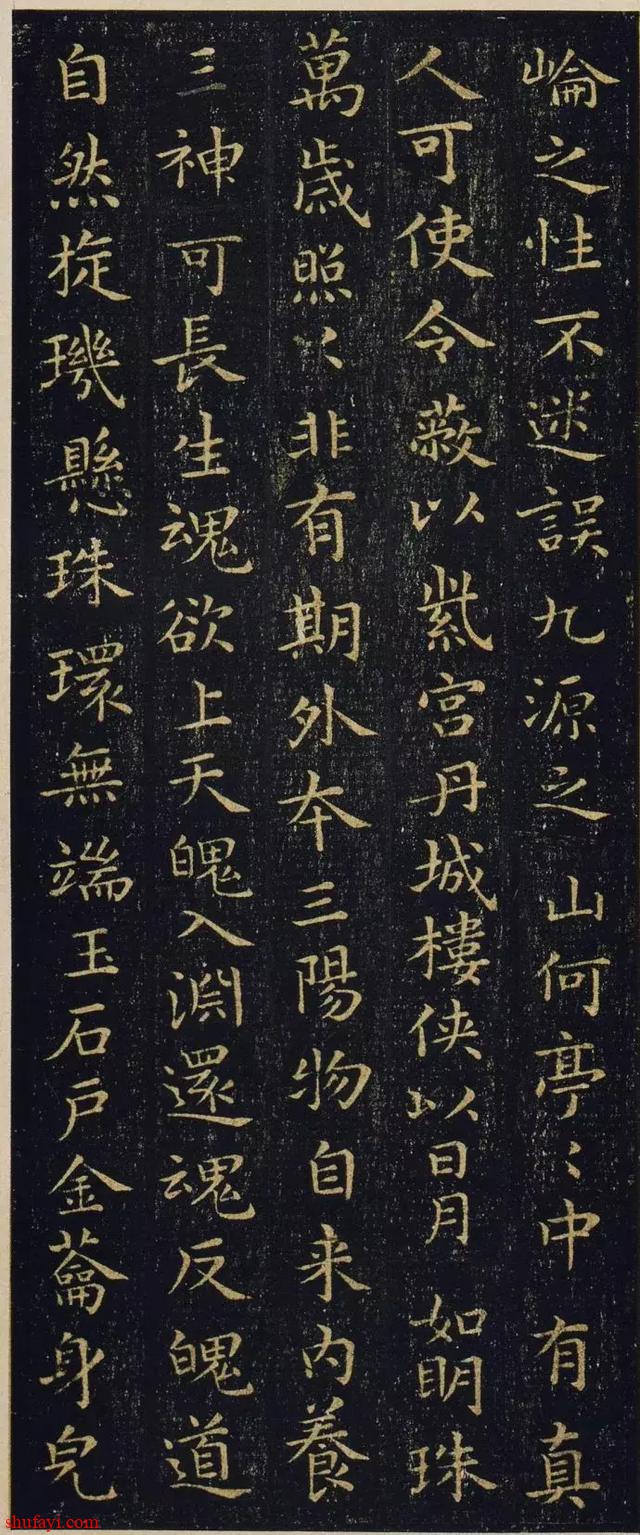 崘之性不迷誤九源之山何亭〻中有真
人可使令蔽以紫宮丹城樓侠以日月如明珠
萬歲照〻非有期外本三陽物自来内養
三神可長生魂欲上天魄入淵還魂反魄道
自然旋璣懸珠環無端玉石戶金蘥身皃
shufayi.com